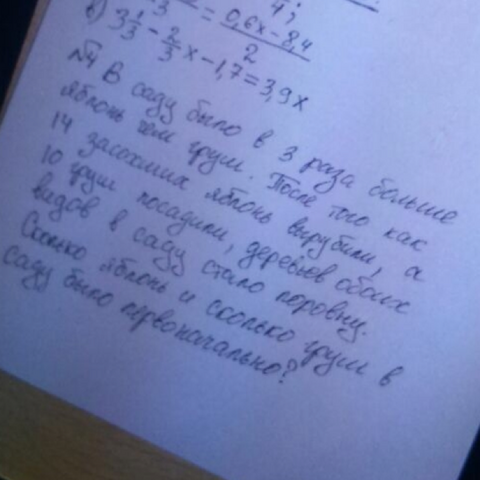 = 0,6x-8,4 / 2
в) 3 1/3 - 2/3 x - 1,7 = 3,9x
№4 В саду было в 3 раза больше
яблонь чем груш. После того как
14 засохших яблонь вырубили, а
10 груш посадили, деревьев обоих
видов в саду стало поровну.
Сколько яблонь и сколько груш в
саду было первоначально?